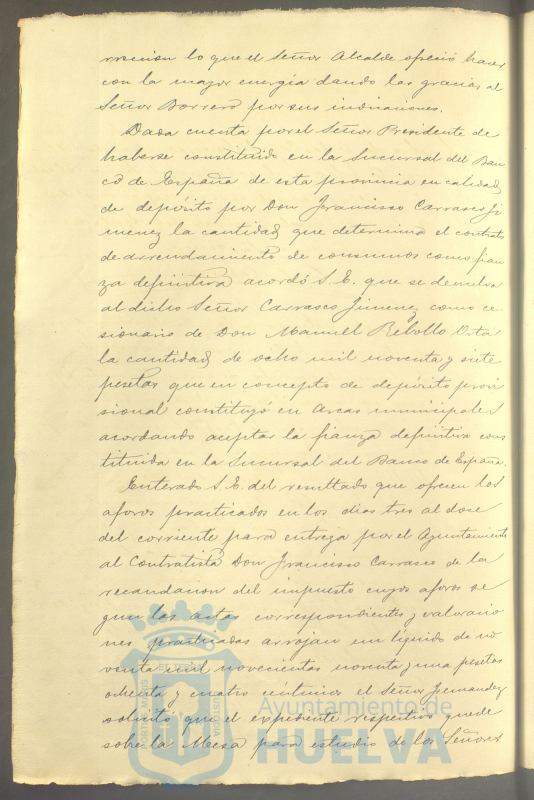 moción lo que el Señor Alcalde ofreció hacer
con la mayor energía dando las gracias al
Señor Borrero por sus indicaciones.
Dada cuenta por el Señor Presidente de
haberse constituido en la Sucursal del Ban
co de España de esta provincia en calidad
de depósito por Don Francisco Carrasco Ji
menez la cantidad que determina el contrato
de arrendamiento de consumos como fian
za definitiva acordó S. E. que se devuelva
al dicho Señor Carrasco Jimenez como ce-
sionario de Don Manuel Rebollo Orta
la cantidad de ocho mil noventa y siete
pesetas que en concepto de depósito provi
sional constituyó en Arcas municipales
acordando aceptar la fianza definitiva cons
tituida en la Sucursal del Banco de España.
Enterado S. E. del resultado que ofrecen los
aforos practicados en los dias tres al doce
del corriente para entrega por el Ayuntamiento
al Contratista Don Francisco Carrasco de la
recaudacion del impuesto cuyos aforos se
gun las actas correspondientes y valoracio
nes practicadas arrojan un líquido de no
venta mil novecientas noventa y una pesetas
ochenta y cuatro céntimos el Señor Fernandez
solicitó que el expediente respectivo quede
sobre la Mesa para estudio de los Señores
Ayuntamiento de
HUELVA